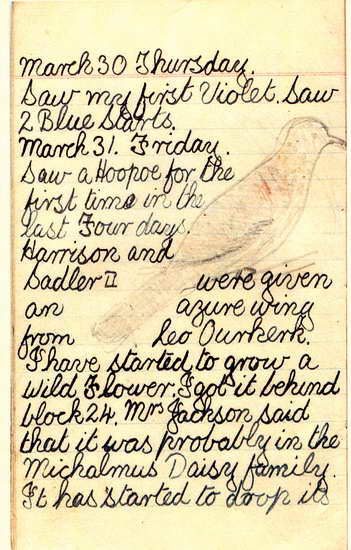 March 30 Thursday.
Saw my first Violet. Saw
2 Blue Starts.
March 31. Friday.
Saw a Hoopoe for the
first time in the
last Four days.
Harrison and
Sadler II were given
an azure wing
from Leo Ourkerk.
I have started to grow a
wild Flower. I got it behind
block 24. Mrs Jackson said
that it was probably in the
Michalmus Daisy family.
It has started to drop its